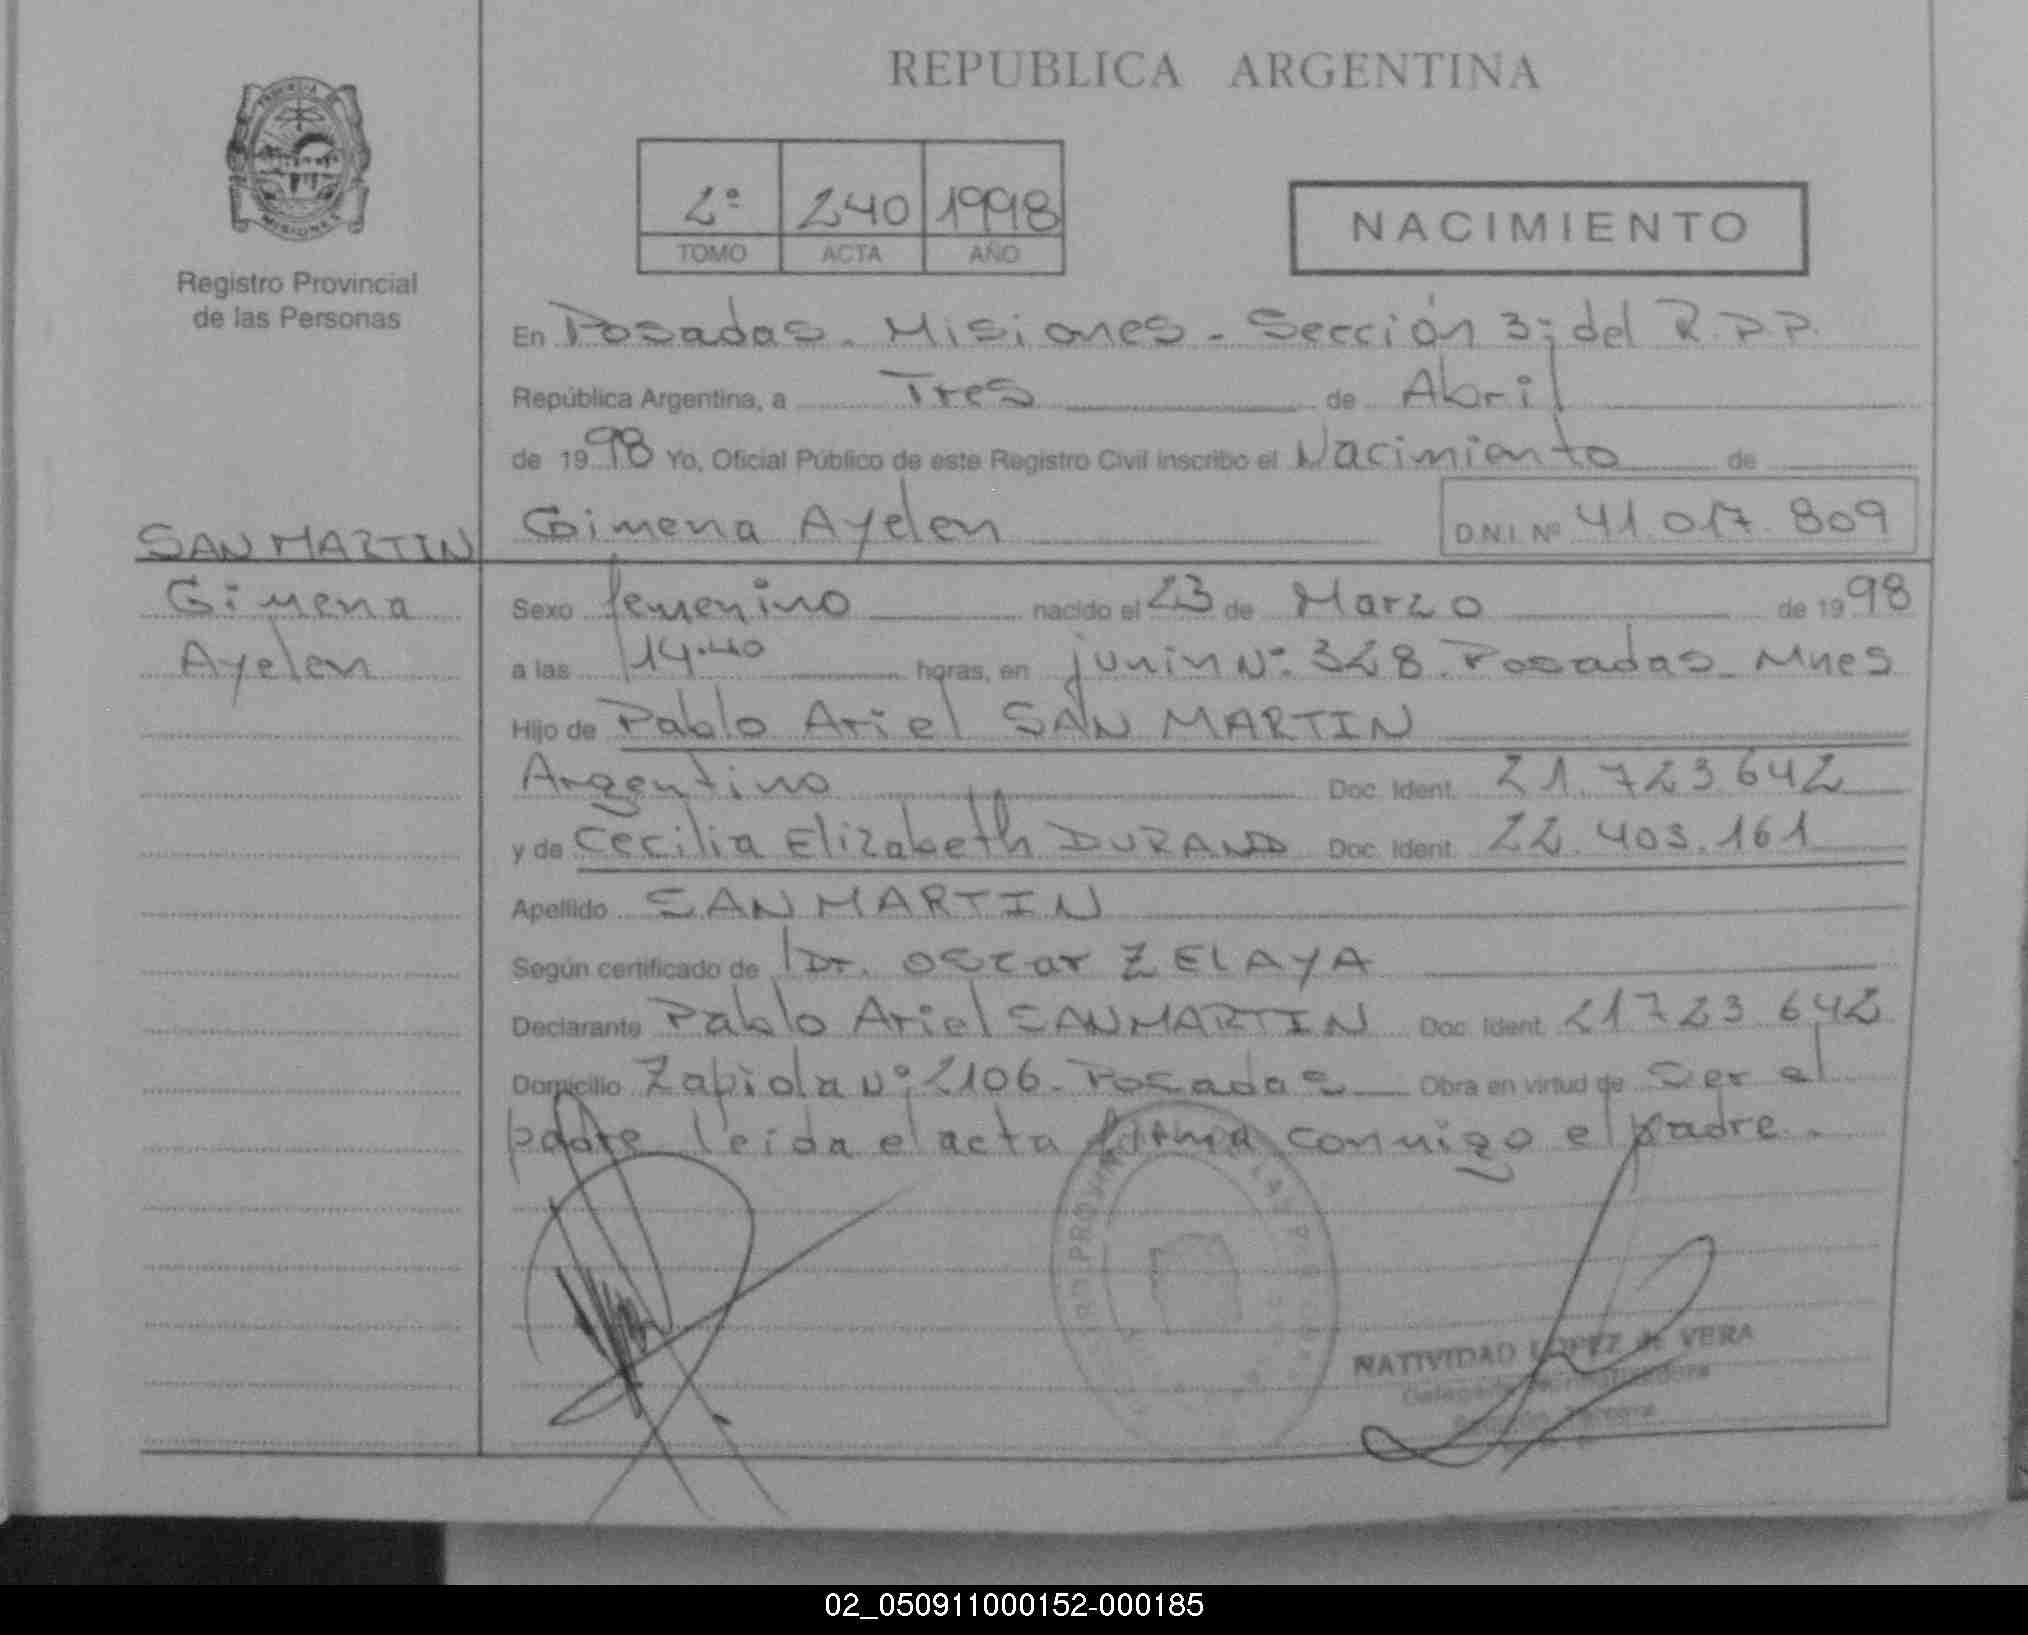 REPUBLICA ARGENTINA
PROVINCIA
MISIONES
Registro Provincial
de las Personas
2º 240 1998
TOMO ACTA AÑO
NACIMIENTO
En Posadas. Misiones - Sección 3ª del R.P.P.
República Argentina, a Tres de Abril
de 1998 Yo, Oficial Público de este Registro Civil inscribo el Nacimiento de
SAN MARTIN Gimena Ayelen D.N.I. Nº 41.017.809
Gimena Sexo femenino nacido el 23 de Marzo de 1998
Ayelen a las 14.40 horas, en junin Nº 328. Posadas. Mnes
Hijo de Pablo Ariel SAN MARTIN
Argentino Doc. Ident. 21.723.642
y de Cecilia Elizabeth DURAND Doc. Ident. 22.403.161
Apellido SAN MARTIN
Según certificado de Dr. Oscar ZELAYA
Declarante Pablo Ariel SAN MARTIN Doc. Ident. 21723 642
Domicilio Zapiola Nº 2106. Posadas Obra en virtud de Ser el
padre leida el acta firma conmigo el padre.
NATIVIDAD LOPEZ de VERA
02_050911000152-000185